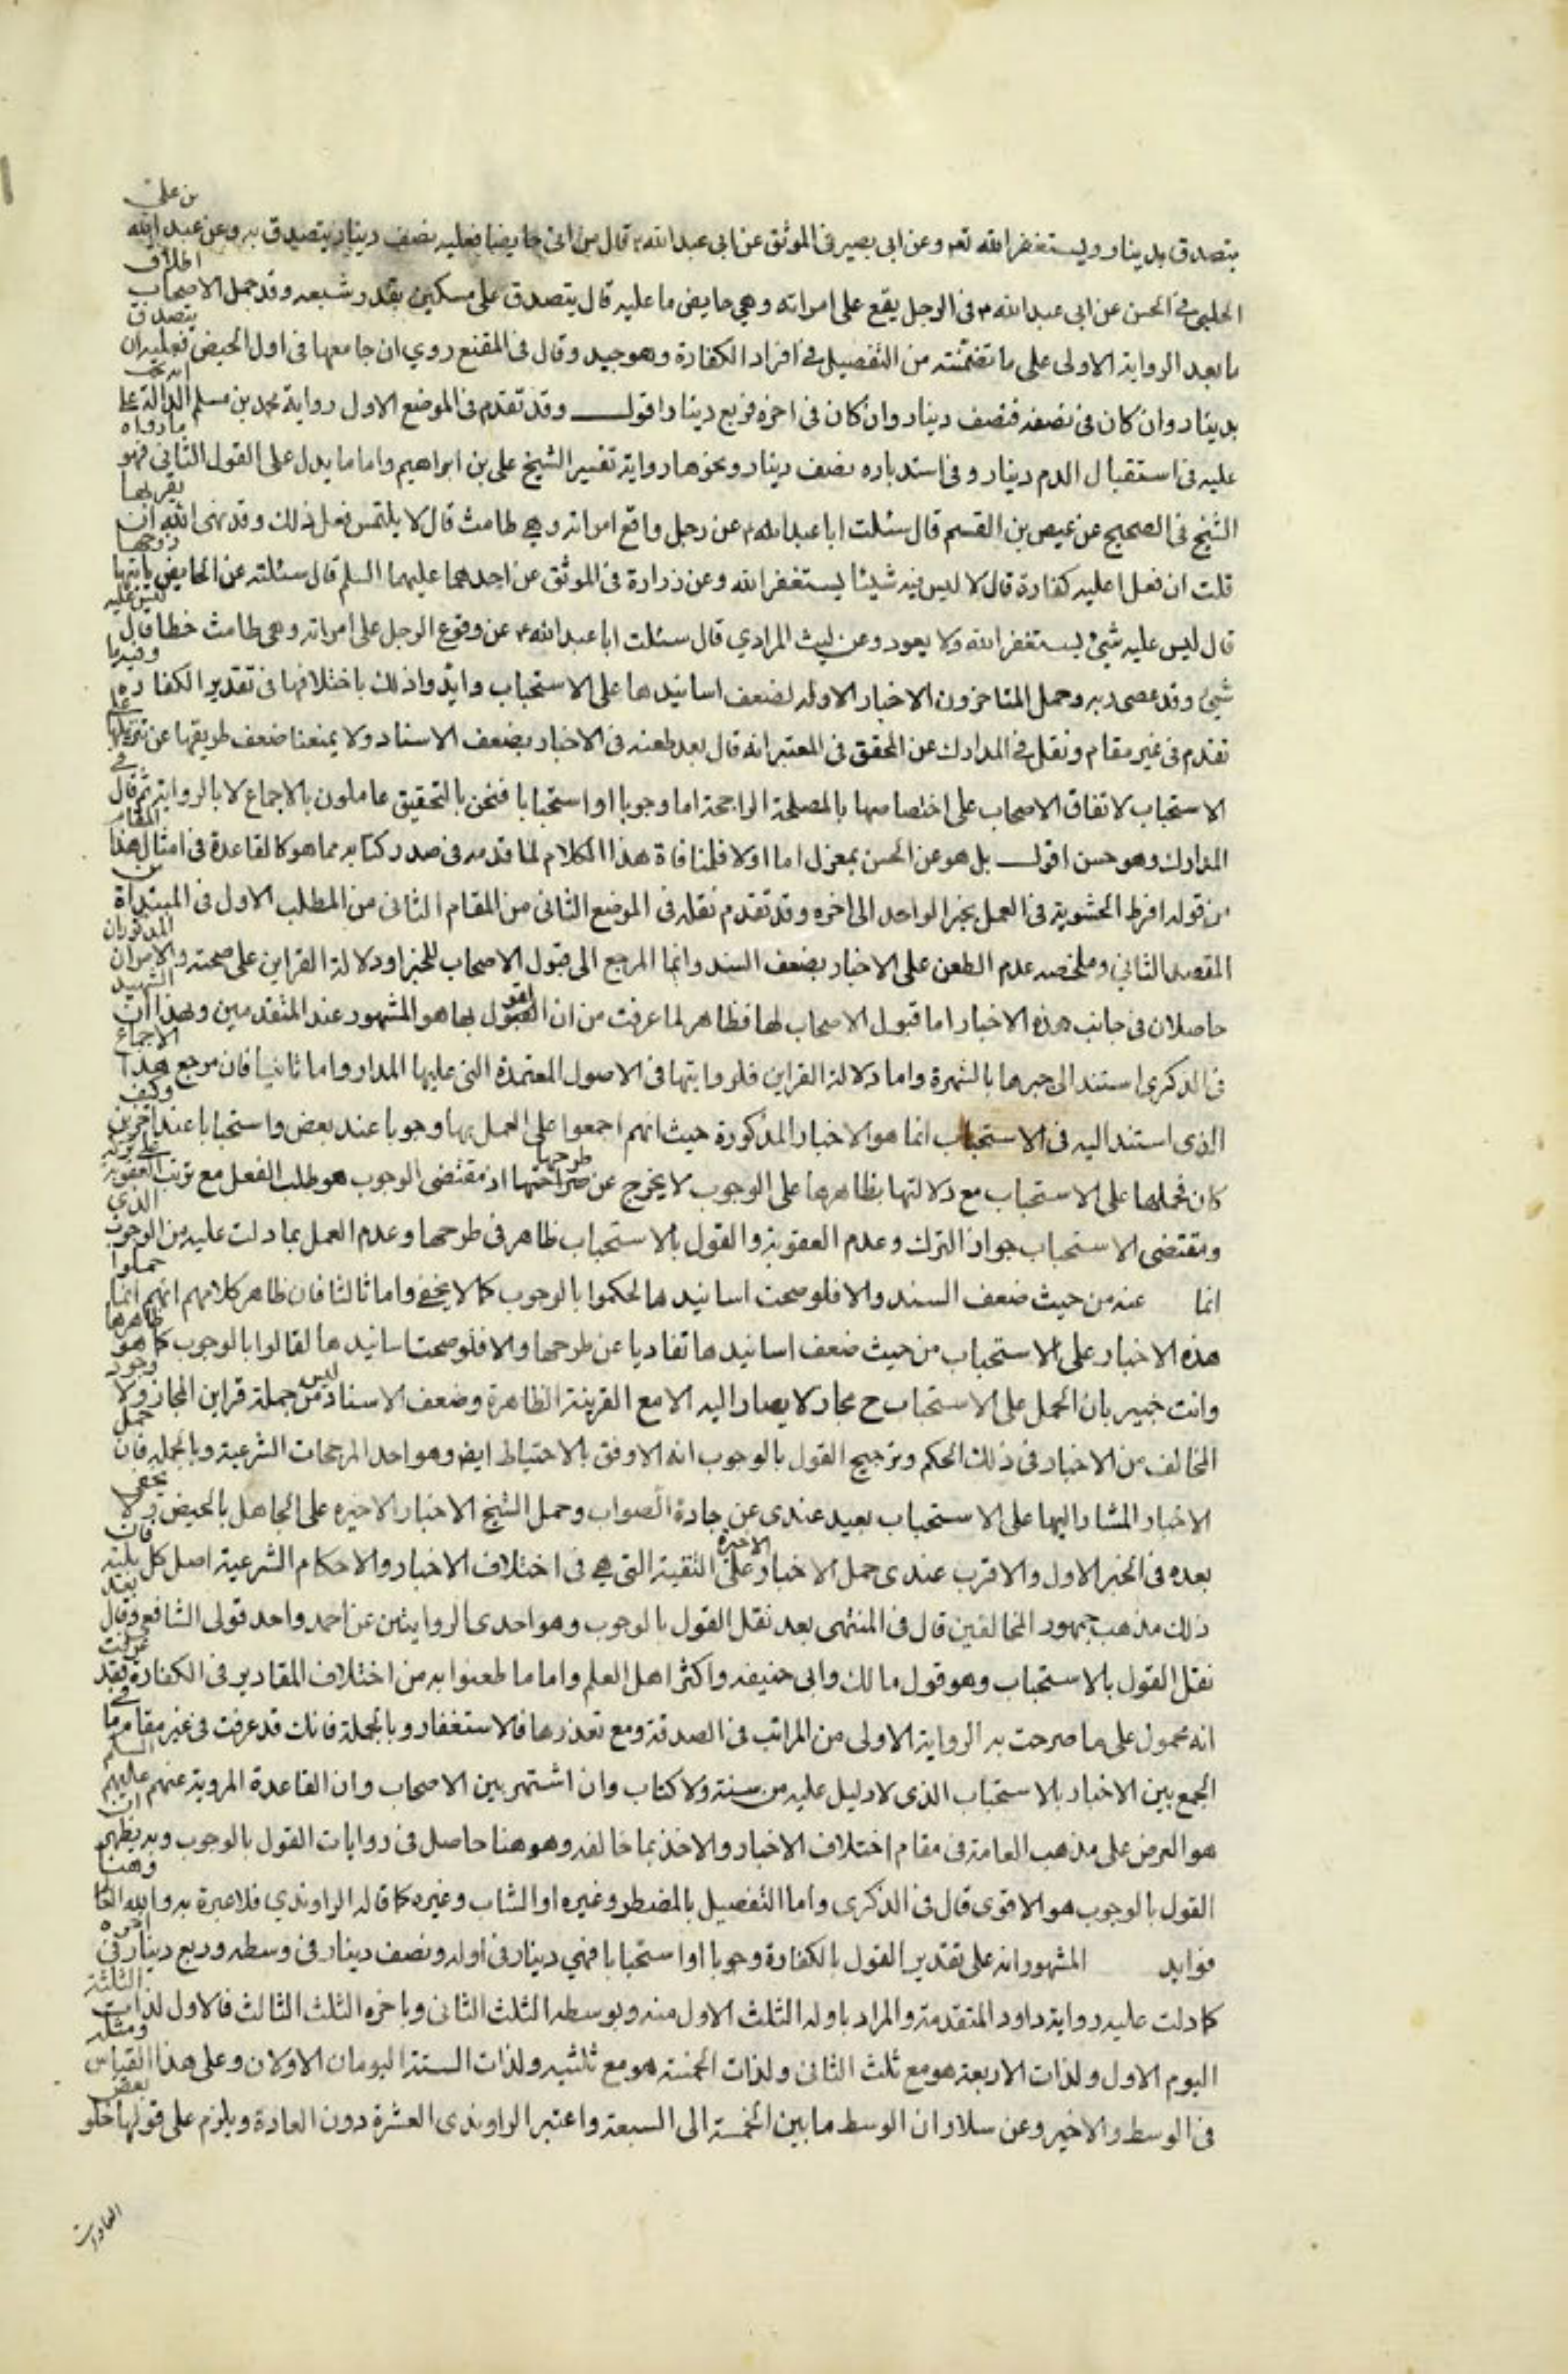 يتصدق بدينار ويستغفر الله تعه وعن ابى بصير فى الموثق عن ابى عبد الله ع قال من اتى حايضا فعليه نصف دينار يتصدق به وعن عبد الله بن على
الحلبى فى الحسن عن ابى عبد الله ع فى الرجل يقع على امراته وهي حايض ما عليه قال يتصدق على مسكين بقدر شبعه وقد حمل الاصحاب اطلاق
ما بعد الرواية الاولى على ما تضمنته من التفصيل فى افراد الكفارة وهو جيد وقال فى المقنع روي ان جامعها فى اول الحيض فعليه ان يتصدق
بدينار وان كان فى نصفه فنصف دينار وان كان فى اخره فربع دينار اقول وقد تقدم فى الموضع الاول رواية محمد بن مسلم الدالة على ان يجب
عليه فى استقبال الدم دينار وفى استدباره نصف دينار ونحوها رواية تفسير الشيخ على بن ابراهيم واما ما يدل على القول الثانى فهو ما رواه
الشيخ فى الصحيح عن عيص بن القسم قال سئلت ابا عبد الله ع عن رجل واقع امراته وهي طامث قال لا يلتمس فعل ذلك وقد نهى الله ان يقربها
قلت ان فعل اعليه كفارة قال لا ليس فيه شيئا يستغفر الله وعن زرارة فى الموثق عن احدهما عليهما السلم قال سئلته عن الحايض ياتيها زوجها
قال ليس عليه شيئ يستغفر الله ولا يعود وعن ليث المرادي قال سئلت ابا عبد الله ع عن وقوع الرجل على امراته وهى طامث خطا قال ليس عليه
شيئ وقد عصى ربه وحمل المتاخرون الاخبار الاوله لضعف اسانيدها على الاستحباب وايدوا ذلك باختلافها فى تقدير الكفارة وفيه ما
تقدم فى غير مقام ونقل فى المدارك عن المحقق فى المعتبر انه قال بعد طعنه فى الاخبار بضعف الاسناد ولا يمنعنا ضعف طريقها عن تنزيلها على
الاستحباب لاتفاق الاصحاب على اختصاصها بالمصلحة الراجحة اما وجوبا او استحبابا فنحن بالتحقيق عاملون بالاجماع لا بالرواية ثم قال فى
المدارك وهو حسن اقول بل هو عن الحسن بمعزل اما اولا فلمنافاة هذا الكلام لما قدمه فى صدر كتابه مما هو كالقاعدة فى امثال هذا المقام
من قوله افرط الحشوية فى العمل بخبر الواحد الى اخره وقد تقدم نقله فى الموضع الثانى من المقام الثانى من المطلب الاول فى المبتداة من
المقصد الثانى وملخصه عدم الطعن على الاخبار بضعف السند وانما المرجع الى قبول الاصحاب للخبر او دلالة القراين على صحته والامران المذكوران
حاصلان فى جانب هذه الاخبار اما قبول الاصحاب لها فظاهر لما عرفت من ان القول بها هو المشهور عند المتقدمين وبهذا ان الشهيد
فى الذكرى استند الى جبرها بالشهرة واما دلالة القراين فلروايتها فى الاصول المعتمدة التى عليها المدار واما ثانيا فان مرجع هذا الاجماع
الذى استند اليه فى الاستحباب انما هو الاخبار المذكورة حيث انهم اجمعوا على العمل بها وجوبا عند بعض واستحبابا عند اخرين وكيف
كان فحملها على الاستحباب مع دلالتها بظاهرها على الوجوب لا يخرج عن طرحها اذ مقتضى الوجوب هو طلب الفعل مع ترتب العقوبة على تركه
ومقتضى الاستحباب جواز الترك وعدم العقوبة والقول بالاستحباب ظاهر فى طرحها وعدم العمل بما دلت عليه من الوجوب الذي
انما عنه من حيث ضعف السند والا فلو صحت اسانيدها لحكموا بالوجوب كما لا يخفى واما ثالثا فان ظاهر كلامهم انهم انما حملوا
هذه الاخبار على الاستحباب من حيث ضعف اسانيدها تفاديا عن طرحها والا فلو صحت اسانيدها لقالوا بالوجوب كما هو ظاهرها
وانت خبير بان الحمل على الاستحباب ح مجاز لا يصار اليه الا مع القرينة الظاهرة وضعف الاسناد ليس من جملة قراين المجاز ولا وجود
المخالف من الاخبار فى ذلك الحكم وترجيح القول بالوجوب انه الاوفق بالاحتياط ايضه وهو احد المرجحات الشرعية وبالجمله فان حمل
الاخبار المشار اليها على الاستحباب بعيد عندى عن جادة الصواب وحمل الشيخ الاخبار الاخيره على الجاهل بالحيض ولا يخفى
بعده فى الخبر الاول والاقرب عندى حمل الاخبار الاخيرة على التقية التى هي فى اختلاف الاخبار والاحكام الشرعية اصل كل بلية فان
ذلك مذهب جمهور المخالفين قال فى المنتهى بعد نقل القول بالوجوب وهو احدى الروايتين عن احمد واحد قولى الشافعى وقال بعد
نقل القول بالاستحباب وهو قول مالك وابى حنيفه واكثر اهل العلم واما ما طعنوا به من اختلاف المقادير فى الكفارة فقد عرفت
انه محمول على ما صرحت به الرواية الاولى من المراتب فى الصدقة ومع تعذرها فالاستغفار وبالجملة فانك قد عرفت فى غير مقام ما فى
الجمع بين الاخبار بالاستحباب الذى لا دليل عليه من سنة ولا كتاب وان اشتهر بين الاصحاب وان القاعدة المروية عنهم عليهم السلم
هو العرض على مذهب العامة فى مقام اختلاف الاخبار والاخذ بما خالفه وهو هنا حاصل فى روايات القول بالوجوب وبه يظهر ان
القول بالوجوب هو الاقوى قال فى الذكرى واما التفصيل بالمضطر وغيره او الشاب وغيره كما قاله الراوندي فلا عبرة به والله العا وهنا
فوايد المشهور انه على تقدير القول بالكفارة وجوبا او استحبابا فهي دينار فى اوله ونصف دينار فى وسطه وربع دينار فى اخره
كما دلت عليه رواية داود المتقدمة والمراد باوله الثلث الاول منه وبوسطه الثلث الثانى وباخره الثلث الثالث فالاول لذات الثلثة
اليوم الاول ولذات الاربعة هو مع ثلث الثانى ولذات الخمسة هو مع ثلثيه ولذات الستة اليومان الاولان وعلى هذا القياس ومثله
فى الوسط والاخير وعن سلار ان الوسط ما بين الخمسة الى السبعة واعتبر الراوندى العشرة دون العادة ويلزم على قولها خلو بعض
العادات